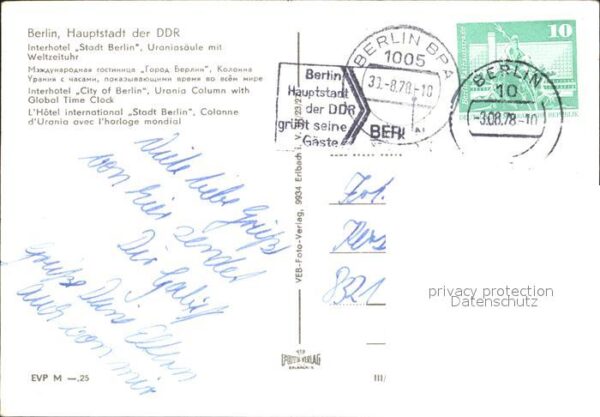 Berlin, Hauptstadt der DDR
Interhotel „Stadt Berlin", Uraniasäule mit
Weltzeituhr
Международная гостиница „Город Берлин", Колонна
Урания с часами, показывающими время во всём мире
Interhotel „City of Berlin", Urania Column with
Global Time Clock
L'Hôtel international „Stadt Berlin", Colonne
d'Urania avec l'horloge mondial
Viele liebe Grüße
von hier sendet
Dir Gabi
Grüße Deine Eltern
auch von mir
EVP M —,25
VEB-Foto-Verlag, 9934 Erlbach i. V.
III/
Berlin
Hauptstadt
der DDR
grüßt seine
Gäste
BERLIN BPA
1005
-8.78-10
BERLIN
10
-3.08.78-10
10
8321
privacy protection
Datenschutz